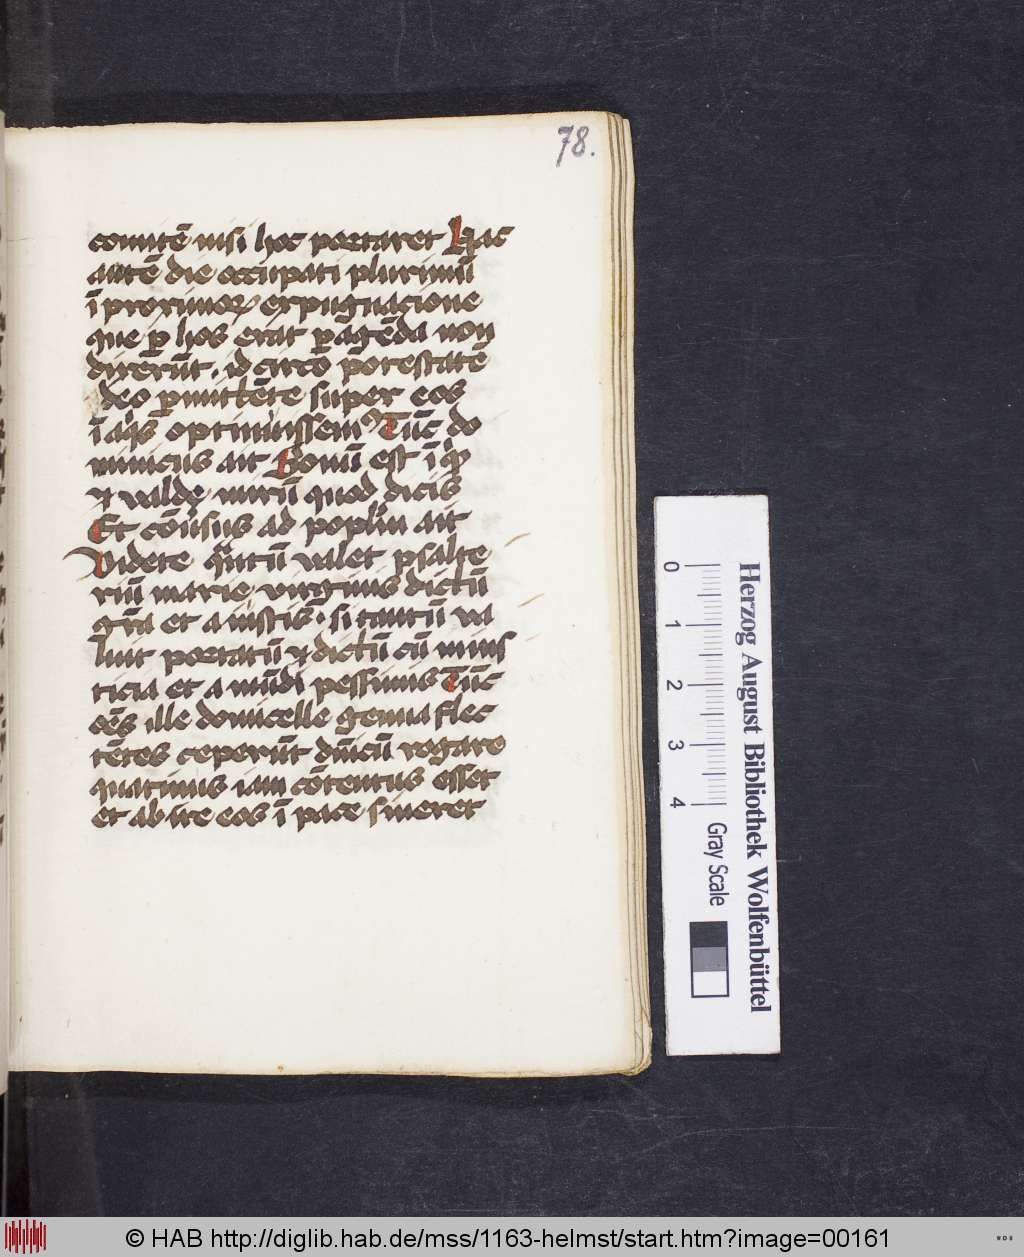 78.
comitē nisi hoc portaret Hac
autē die occupati plurimū
ī proximoꝝ expugnacione
que ꝑ hos erat ꝑagēda non
dixerūt · id circo potestatē
deo ꝑmittēte super eos
ī aq̓s optinuissem⁹ Tūc do
minicus ait Bonū est ī
⁊ valde mirū quod dicis
Et cōūsus ad popl̄m ait
Videte q̄ntū valet psalte
riū marie virginis dictū
gr̄a et a iustis · si tantū va
luit portatū ⁊ dictū cū inius
ticia et a mūdi pessimis Tūc
oēs ille domicelle genua flec
tētes ceperūt dn̄icū rogare
quatinus iam cōtentus esset
et abire eos ī pace sineret
Herzog August Bibliothek Wolfenbüttel
0 1 2 3 4
Gray Scale
© HAB http://diglib.hab.de/mss/1163-helmst/start.htm?image=00161